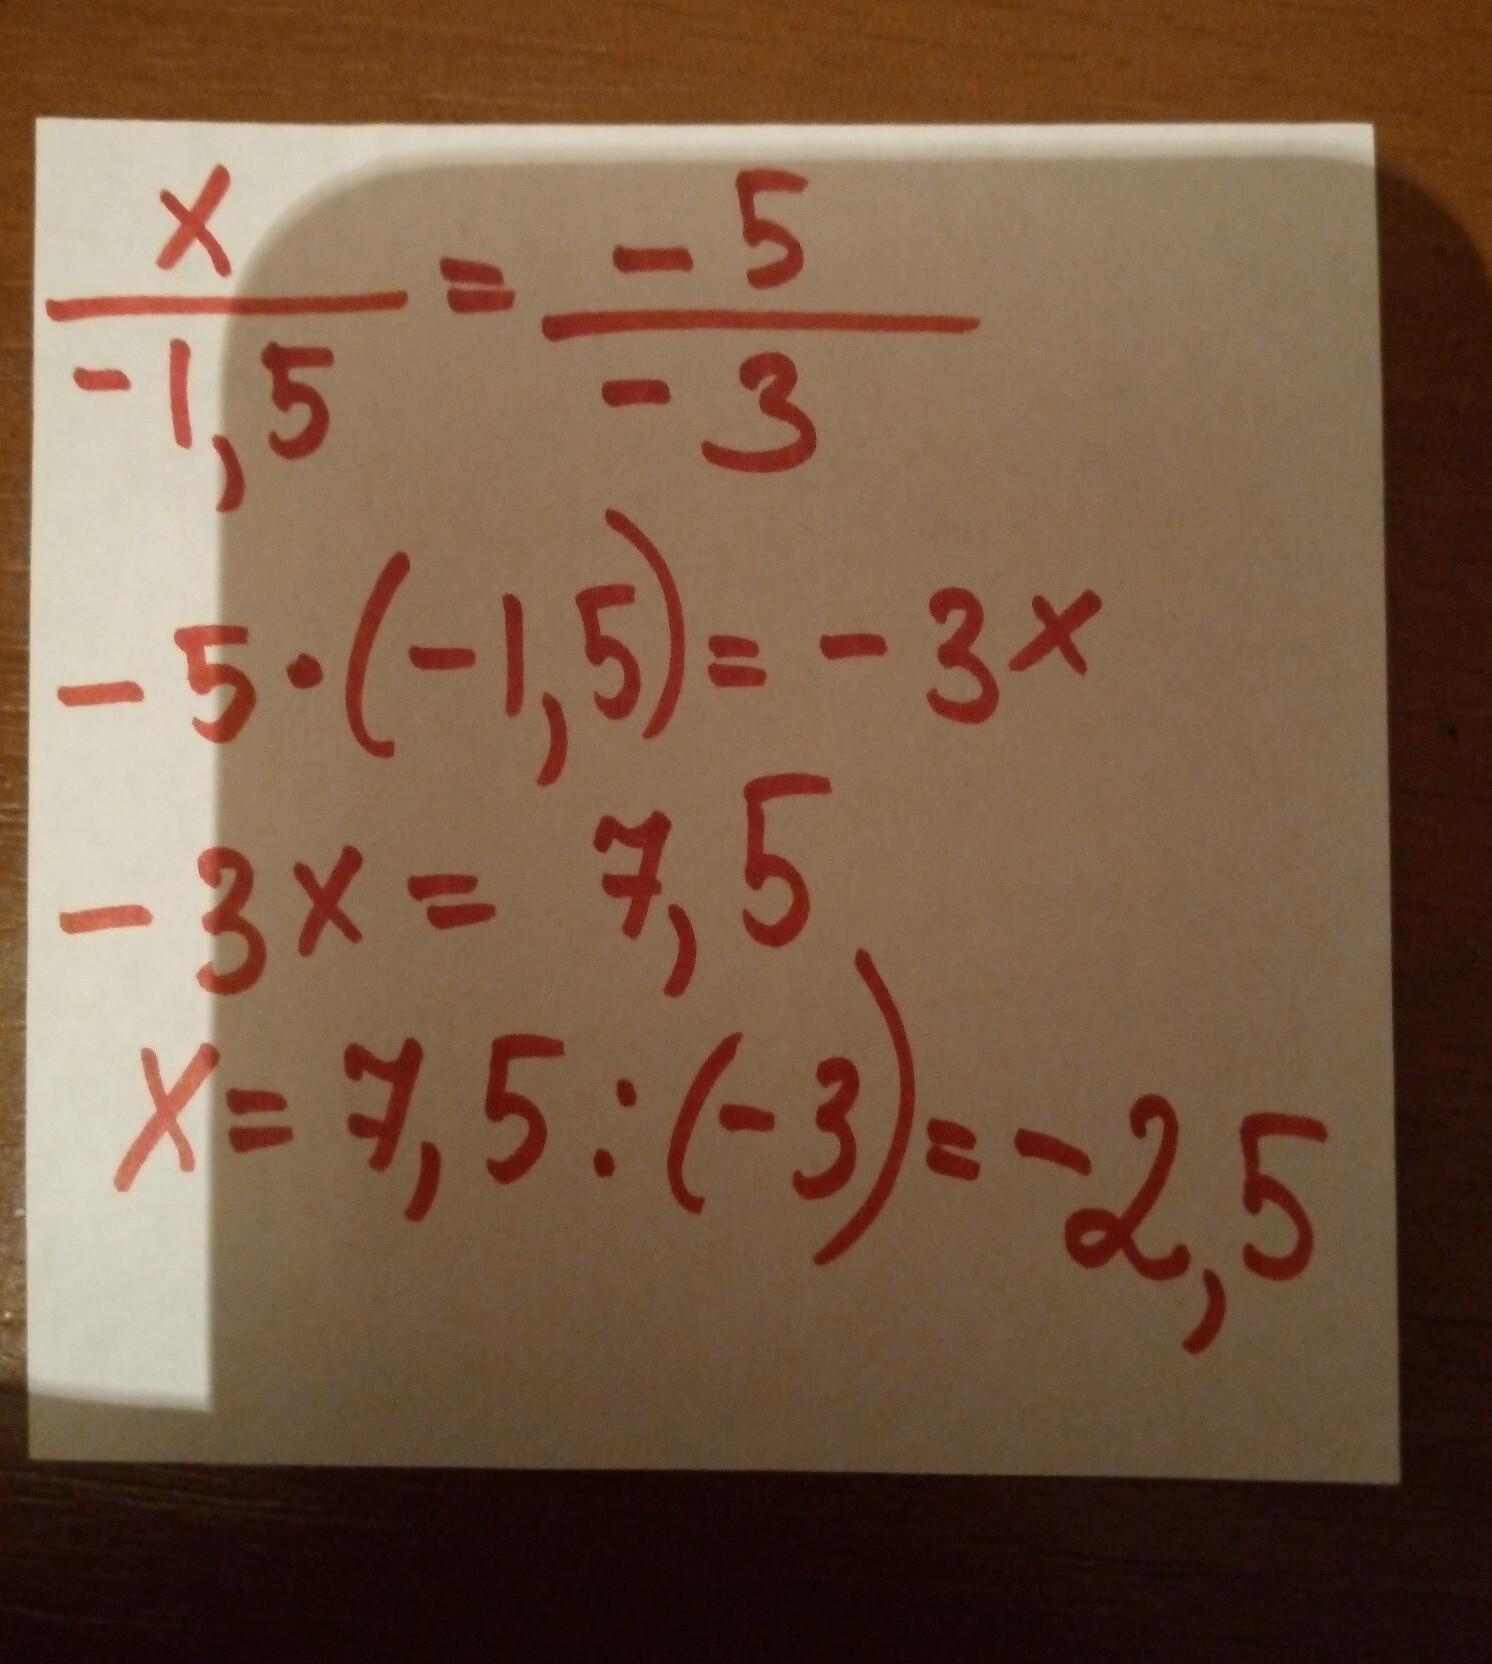 x/-1,5 = -5/-3
-5·(-1,5)=-3x
-3x= 7,5
x=7,5:(-3)=-2,5